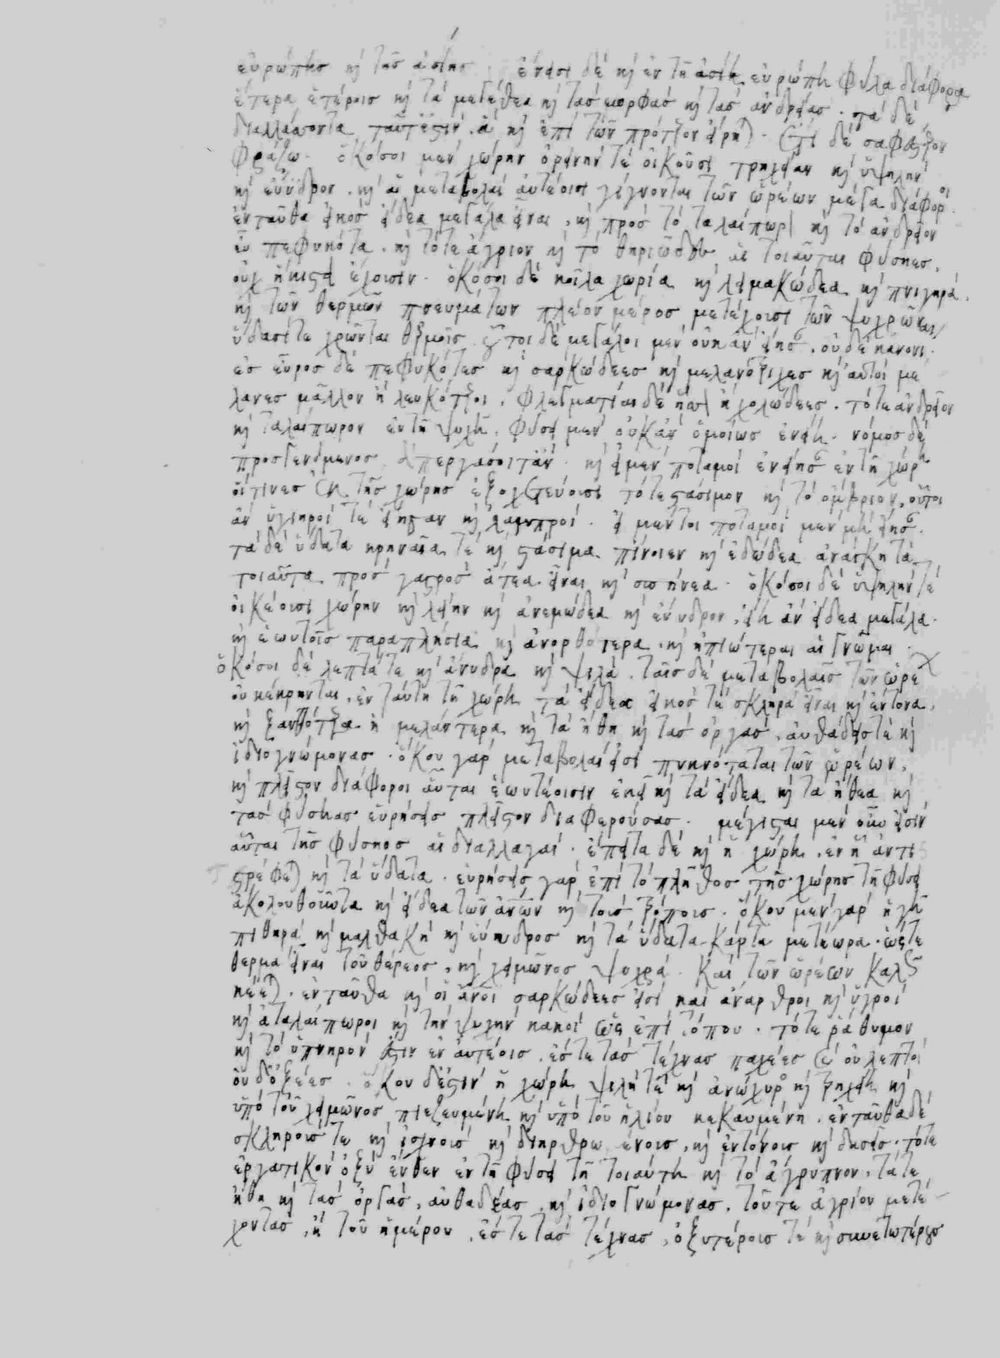 εὐρώπης καὶ τῆς ἀσίης ἔνεισι δὲ καὶ ἐν τῇ εὐρώπῃ φῦλα διάφορα
ἕτερα ἑτέροις καὶ τὰ μεγέθεα καὶ τὰς μορφὰς καὶ τὰς ἀνδρείας· τὰ δὲ
διαλλάσσοντα ταῦτά ἐστιν ἃ καὶ ἐπὶ τῶν πρότερον εἴρηται· ἔτι δὲ σαφέστερον
φράσω· ὁκόσοι μὲν χώρην ὀρεινήν τε οἰκοῦσι τρηχεῖαν καὶ ὑψηλὴν
καὶ εὔυδρον, καὶ αἱ μεταβολαὶ αὐτέοισι γίγνονται τῶν ὡρέων μέγα διάφοροι
ἐνταῦθα εἰκὸς εἴδεα μεγάλα εἶναι, καὶ πρὸς τὸ ταλαίπωρον καὶ τὸ ἀνδρεῖον
εὖ πεφυκότα. καὶ τό τε ἄγριον καὶ τὸ θηριῶδες αἱ τοιαῦται φύσηες,
οὐχ ἥκιστα ἔχουσιν· ὁκόσοι δὲ κοῖλα χωρία καὶ λειμακώδεα καὶ πνιγηρά,
καὶ τῶν θερμῶν πνευμάτων πλέον μέρος μετέχουσι τῶν ψυχρῶν
ὕδασί τε χρῶνται θερμοῖς οὗτοι δὲ μεγάλοι μὲν οὐκ ἂν εἴησαν, οὐδὲ κανονί
ες εὖρος δὲ πεφυκότες καὶ σαρκώδεες καὶ μελανότριχες καὶ αὐτοὶ μέ
λανες μᾶλλον ἢ λευκότεροι, φλεγματίαι δὲ ἧσσον ἢ χολώδεες· τό τε ἀνδρεῖον
καὶ ταλαίπωρον ἐν τῇ ψυχῇ φύσει μὲν οὐκ ἂν ὁμοίως ἐνείη· νόμος δὲ
προσγενόμενος ἀπεργάσοιτ' ἄν· καὶ εἰ μὲν ποταμοὶ ἐνείησαν ἐν τῇ χώρῃ
οἵτινες ἐκ τῆς χώρης ἐξοχετεύουσι τό τε στάσιμον καὶ τὸ ὄμβριον, οὗτοι
ἂν ὑγιηροί τε εἴησαν καὶ λαμπροί· εἰ μέντοι ποταμοὶ μὲν μὴ εἴησαν
τὰ δὲ ὕδατα κρηναῖά τε καὶ στάσιμα πίνοιεν καὶ ἑλώδεα ἀνάγκη τὰ
τοιαῦτα προσ γαστροσ ἄτεα εἶναι καὶ σπλήνεα· ὁκόσοι δὲ ὑψηλήν τε
οἰκέουσι χώρην καὶ λείην καὶ ἀνεμώδεα καὶ ἔνυδρον, εἴη ἂν εἴδεα μεγάλα
καὶ ἑωυτοῖς παραπλήσια, καὶ ἀνορθότερα, καὶ ἠπιώτεραι αἱ γνῶμαι
ὁκόσοι δὲ λεπτά τε καὶ ἄνυδρα καὶ ψιλά, ταῖς δὲ μεταβολαῖς τῶν ὡρέ
οὐ κέκρηνται, ἐν ταύτῃ τῇ χώρῃ τὰ εἴδεα εἰκός τε σκληρὰ εἶναι καὶ ἔντονα,
καὶ ξανθότερα ἢ μελάντερα καὶ τὰ ἤθη καὶ τὰς ὀργὰς αὐθάδεάς τε καὶ
ἰδιογνώμονας· ὅκου γὰρ μεταβολαί εἰσι πυκνόταται τῶν ὡρέων,
καὶ πλεῖστον διάφοροι αὗται ἑωυτέοισιν ἐκεῖ καὶ τὰ εἴδεα καὶ τὰ ἤθεα καὶ
τὰς φύσηας εὑρήσεις πλεῖστον διαφερούσας· μέγισται μὲν οὖν εἰσιν
αὗται τῆς φύσηος αἱ διαλλαγαί· ἔπειτα δὲ καὶ ἡ χώρη, ἐν ᾗ ἄν τι
τρέφεται καὶ τὰ ὕδατα· εὑρήσεις γὰρ ἐπὶ τὸ πλῆθος τῆς χώρης τῇ φύσει
ἀκολουθοῦντα καὶ εἴδεα τῶν ἀνθρώπων καὶ τοὺς τρόπους· ὅκου μὲν γὰρ ἡ γῆ
πίθηρα καὶ μαλθακὴ καὶ εὔυδρος καὶ τὰ ὕδατα κάρτα μετέωρα· ὥστε
θερμὰ εἶναι τοῦ θέρεος, καὶ χειμῶνος ψυχρά· καὶ τῶν ὡρέων καλῶς
κέεται· ἐνταῦθα καὶ οἱ ἄνθρωποι σαρκώδεές εἰσι καὶ ἄναρθροι καὶ ὑγροὶ
καὶ ἀταλαίπωροι καὶ τὴν ψυχὴν κακοὶ ὡς ἐπὶ τόπου· τό τε ῥάθυμον
καὶ τὸ ὑπνηρὸν ἔστιν ἐν αὐτέοις, ἔς τε τὰς τέχνας παχέες καὶ οὐ λεπτοὶ
οὐδ' ὀξέες· ὅκου δέ ἐστιν ἡ χώρη ψιλή τε καὶ ἀνώχυρος καὶ τρηχείη καὶ
ὑπὸ τοῦ χειμῶνος πιεζευμένη καὶ ὑπὸ τοῦ ἡλίου κεκαυμένη, ἐνταῦθα δὲ
σκληρούς τε καὶ ἰσχνοὺς καὶ διηρθρωμένους, καὶ ἐντόνους καὶ δασεῖς· τό τε
ἐργατικὸν ὀξὺ ἐνθεν ἐν τῇ φύσει τῇ τοιαύτῃ καὶ τὸ ἄγρυπνον, τά τε
ἤθη καὶ τὰς ὀργὰς, αὐθάδεας, καὶ ἰδιογνώμονας, τοῦ τε ἀγρίου μετέ
χοντας, ἢ τοῦ ἡμέρου, ἔς τε τὰς τέχνας, ὀξυτέρους τε καὶ συνετωτέρους